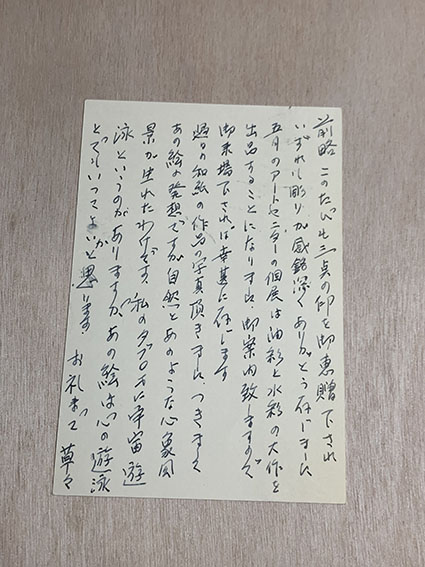 前略 このたびも三点の印を御恵贈下され
いずれも彫りが感銘深くありがとう存じました
五月のアートセンターの個展は油彩と水彩の大作を
出品することになりました 御案内致しますので
御来場下されば幸甚に存じます
過日は和紙の作品の写真頂きました、つきまして
あの絵の発想ですが自然とあのような心象風
景が生れたわけです、「私のタブロオに宇宙遊
泳というのがありますが、あの絵は「心の遊泳
とでもいってよいかと思います
お礼まで 草々